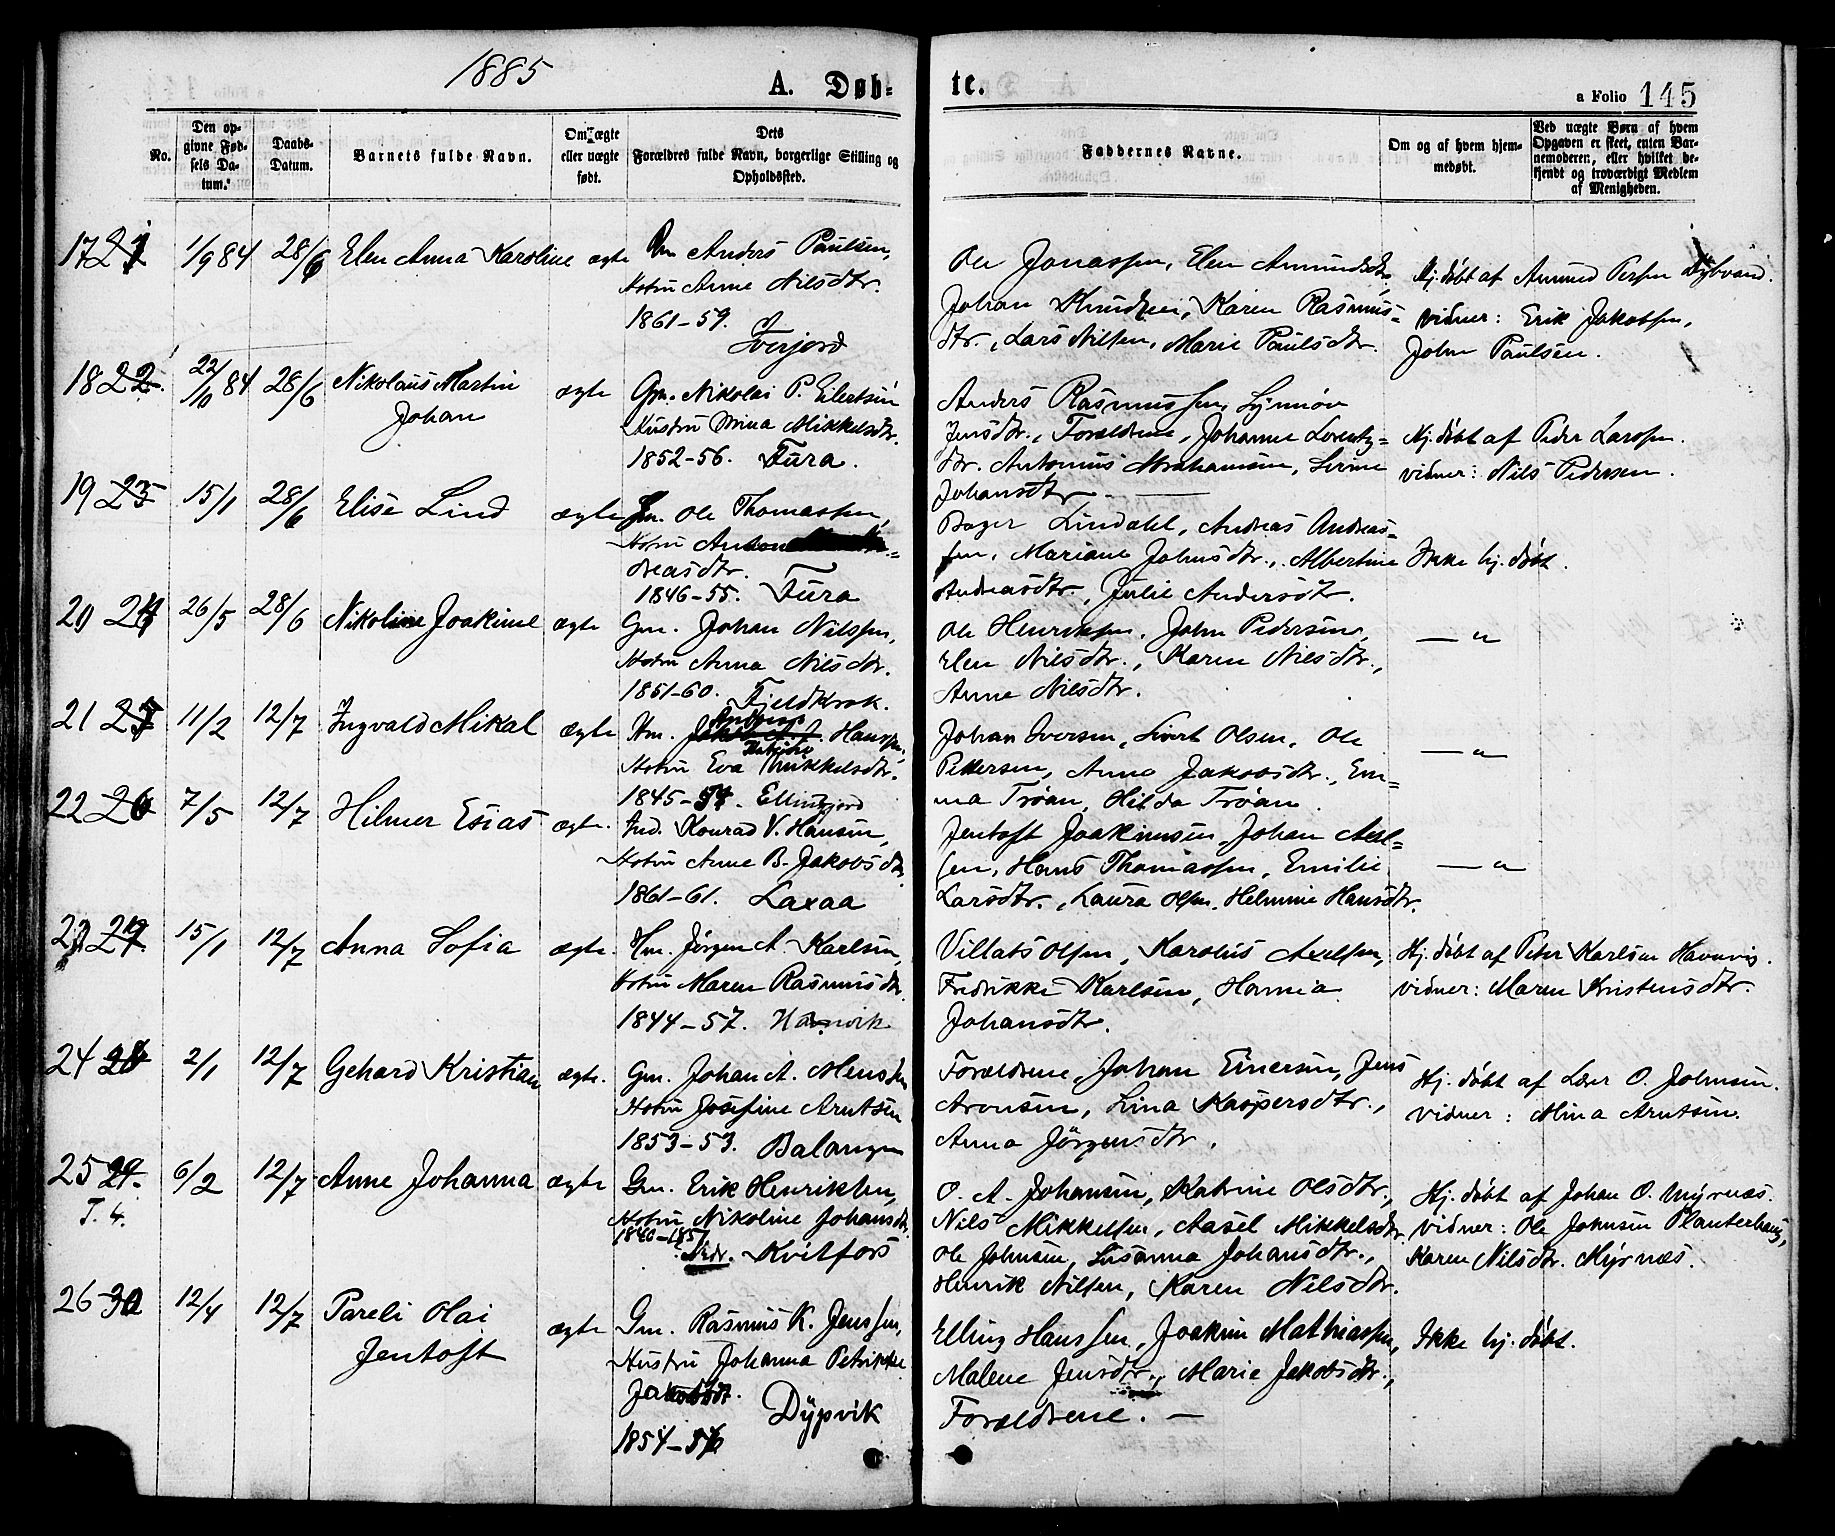 1885
A. Døb-
te.
a Folio 145
No.
Den op-
givne Fød-
sels Da-
tum.
Daabs-
Datum.
Barnets fulde Navn.
Om ægte
eller uægte
født.
Dets
Forældres fulde Navn, borgerlige Stilling og
Opholdssted.
Faddernes Navne.
Om og af hvem hjem-
medøbt.
Ved uægte Børn af hvem
Opgaven er skeet, enten Bar-
nemoderen, eller hvilket be-
kjendt og troværdigt Medlem
af Menigheden.
17 21 1/9 84 28/6 Elen Anna Karoline ægte Anders Paulsen,
Hstru Anne Nilsdtr.
1861-59.
Tverfjord
Ole Jonassen, Elen Amundsdtr,
Johan Knudsen, Karen Rasmus=
dtr., Lars Nilsen, Marie Paulsdtr.
Hj. döbt af Amund Persen Dybvand.
vidner: Erik Jakobsen,
John Paulsen.
18 22 22/10 84 28/6 Nikolaus Martin
Johan
ægte Gm. Nikolai P. Eilertsen
Hustru Mina Mikkelsdtr.
1852-56. Fura.
Anders Rasmussen, Synnöv
Jensdtr., Forældrene, Johanne Lorentz=
dtr. Antonius Abrahamsen, Sirine
Johansdtr
Hj. döbt af Peder Larssen.
vidner: Nils Pedersen.
19 23 15/1 28/6 Elise Lind
ægte Ole Thomassen,
Hstru
dreasdtr.
1846-55. Fura
Bager Lindahl, Andreas Andreas=
sen, Mariane Johnsdtr., Albertine
Andreasdtr., Julie Andersdtr.
Ikke hj. döbt.
20 24 26/5 28/6 Nikoline Joakime ægte Gm. Johan Nilssen,
Hstru Anna Nilsdtr.
1851-60. Fjeldkrok.
Ole Henriksen, John Pedersen,
Elen Nilsdtr., Karen Nilsdtr.,
Anne Nilsdtr.
— " —
21 25 11/2 12/7 Ingvald Mikal ægte Hm. Andreas Hanssen,
Hstru Eva Mikkelsdtr.
1845-54. Ellinfjord
Johan Iversen, Sivert Olsen, Ole
Pettersen, Anne Jakobsdtr., Em=
ma Tröan, Hilda Tröan.
— " —
22 26 7/5 12/7 Hilmer Esias ægte. Ind. Konrad V. Hansen,
Hstru Anne B. Jakobsdtr.
1861-61. Laxaa
Jentoft Joakimsen, Johan Axel=
sen, Hans Thomassen, Emilie
Larsdtr., Laura Olsen, Helmine Hansdtr.
— " —
23 27 15/1 12/7 Anna Sofia ægte. Hm. Jörgen A. Karlsen,
Hstru Maren Rasmusdtr.
1844-57. Havnvik
Villats Olsen, Karolus Axelsen,
Fredrikke Karlsen, Hanna
Johansdtr.
Hj. döbt af Peter Karlsen Havnvig.
vidner: Maren Kristensdtr.
24 28 2/1 12/7 Gehard Kristian ægte. Gm. Johan A. Monssen
Hstru Josefine Arntsen
1853-53. Balangen
Forældrene, Johan Einersen, Jens
Aronsen, Lina Kaspersdtr.,
Anna Jörgensdtr.
Hj. döbt af Lærer O. Johnsen.
vidner: Mina Arntsen.
25 29. 6/2 12/7 Anne Johanna ægte Gm. Erik Henriksen,
T. 4.
Hstru Nikoline Johansdtr.
1840-1857
Nedr. Kvitfors
O. A. Johansen, Katrine Olsdtr.,
Nils Mikkelsen, Aasel Mikkelsdtr.
Ole Johnsen, Susanna Johansdtr.,
Henrik Nilsen, Karen Nilsdtr.
Hj. döbt af Johan O. Myrnæs.
vidner: Ole Johnsen Planterhaug,
Karen Nilsdtr. Myrnæs.
26 30 12/4 12/7 Pareli Olai
Jentoft
ægte Gm. Rasmus K. Jenssen,
Hustru Johanna Petrikke
Jakobsdt.
1854-56
Dypvik
Elling Hanssen, Joakim Mathiassen,
Malene Jensdtr., Marie Jakobsdtr.,
Forældrene. —
Ikke hj. döbt.